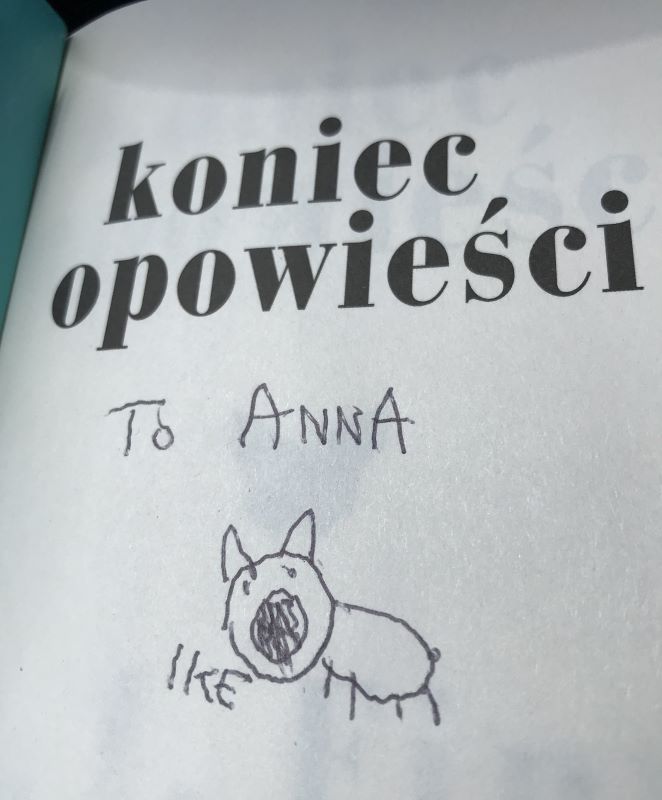 koniec
opowieści
To ANNA
IKE